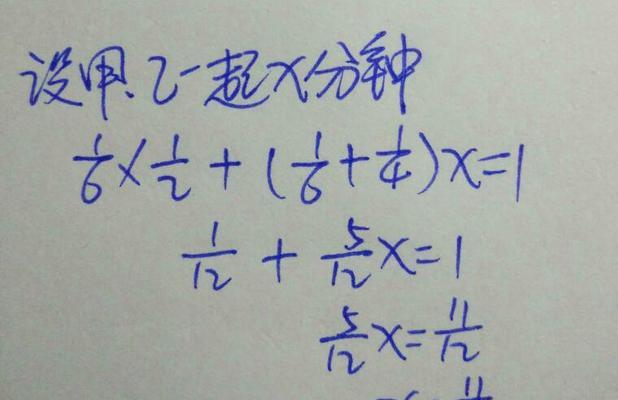 设甲、乙一起x分钟
1/6×1/2+(1/6+1/4)x=1
1/12+5/12x=1
5/12x=11/12